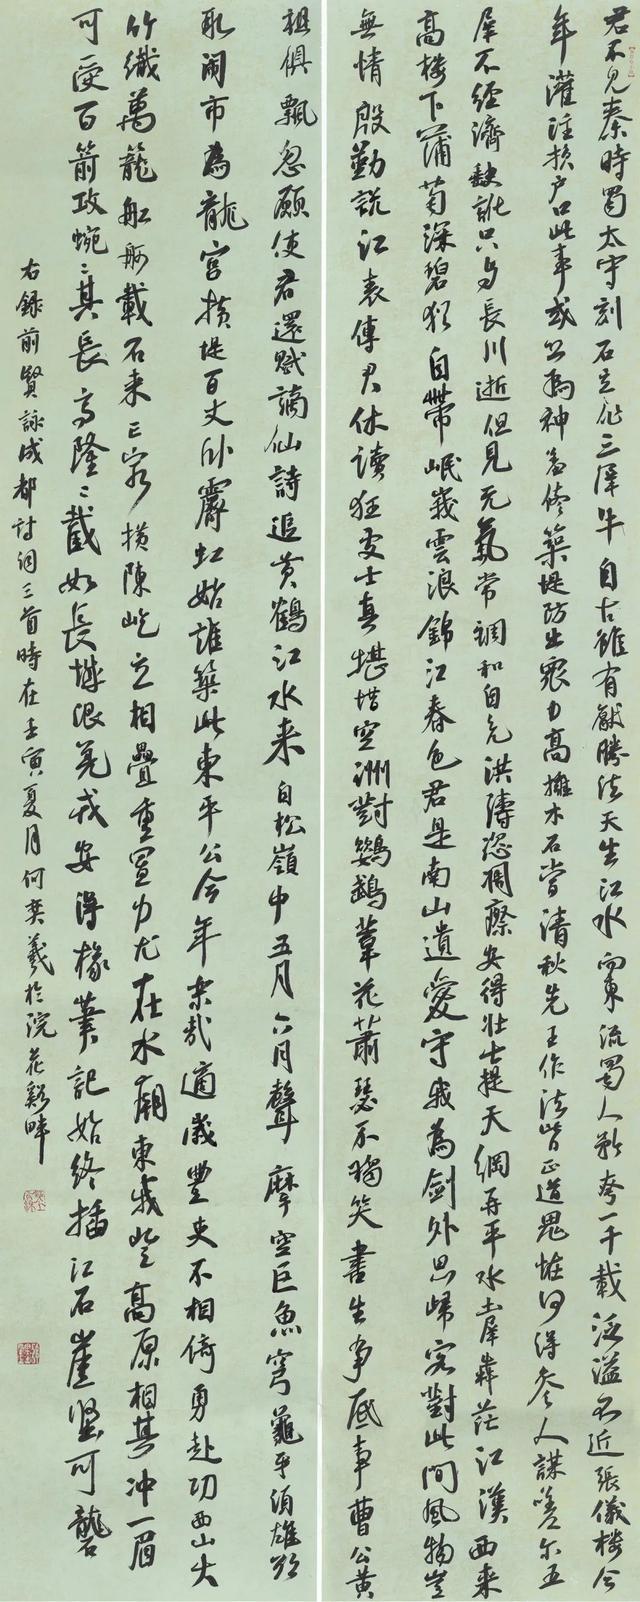 君不見秦時蜀太守刻石立作三犀牛自古雖有厭勝法天生江水向東流蜀人矜夸一千載泛溢不近張儀樓今
年灌注損户口此事或恐為神羞修築堤防出衆力高擁木石當清秋先王作法皆正道鬼怪何得參人謀嗟尔五
犀不經濟缺訛只与長川逝但見元氣常調和自免洪濤恣凋瘵安得壯士提天綱再平水土犀奔茫江漢西来
高樓下蒲萄深碧猶自帶岷峨雲浪錦江春色君是南山遺愛守我為劍外思歸客對此間風物豈
無情殷勤說江表傳君休讀狂處士真堪惜空洲對鸚鵡葦花蕭瑟不獨笑書生爭底事曹公黄
祖俱飄忽願使君還賦謫仙詩追黄鶴江水来自松嶺中五月六月聲摩空巨魚穹龜牙須雄欲
取闹市為龍宫横堤百丈卧霽虹始誰築此東平公今年樂哉適歲豐吏不相倚勇赴功西山大
竹織萬籠船舸載石来亡窮横陳屹立相疊重置力尤在水廟東我登高原相其冲一眉
可受百箭攻蜿〻其長高隆〻截如長城限羌戎安得椽筆記始終插江石崖堅可礱
右錄前賢詠成都詩詞三首時在壬寅夏月何奕羲於浣花谿畔